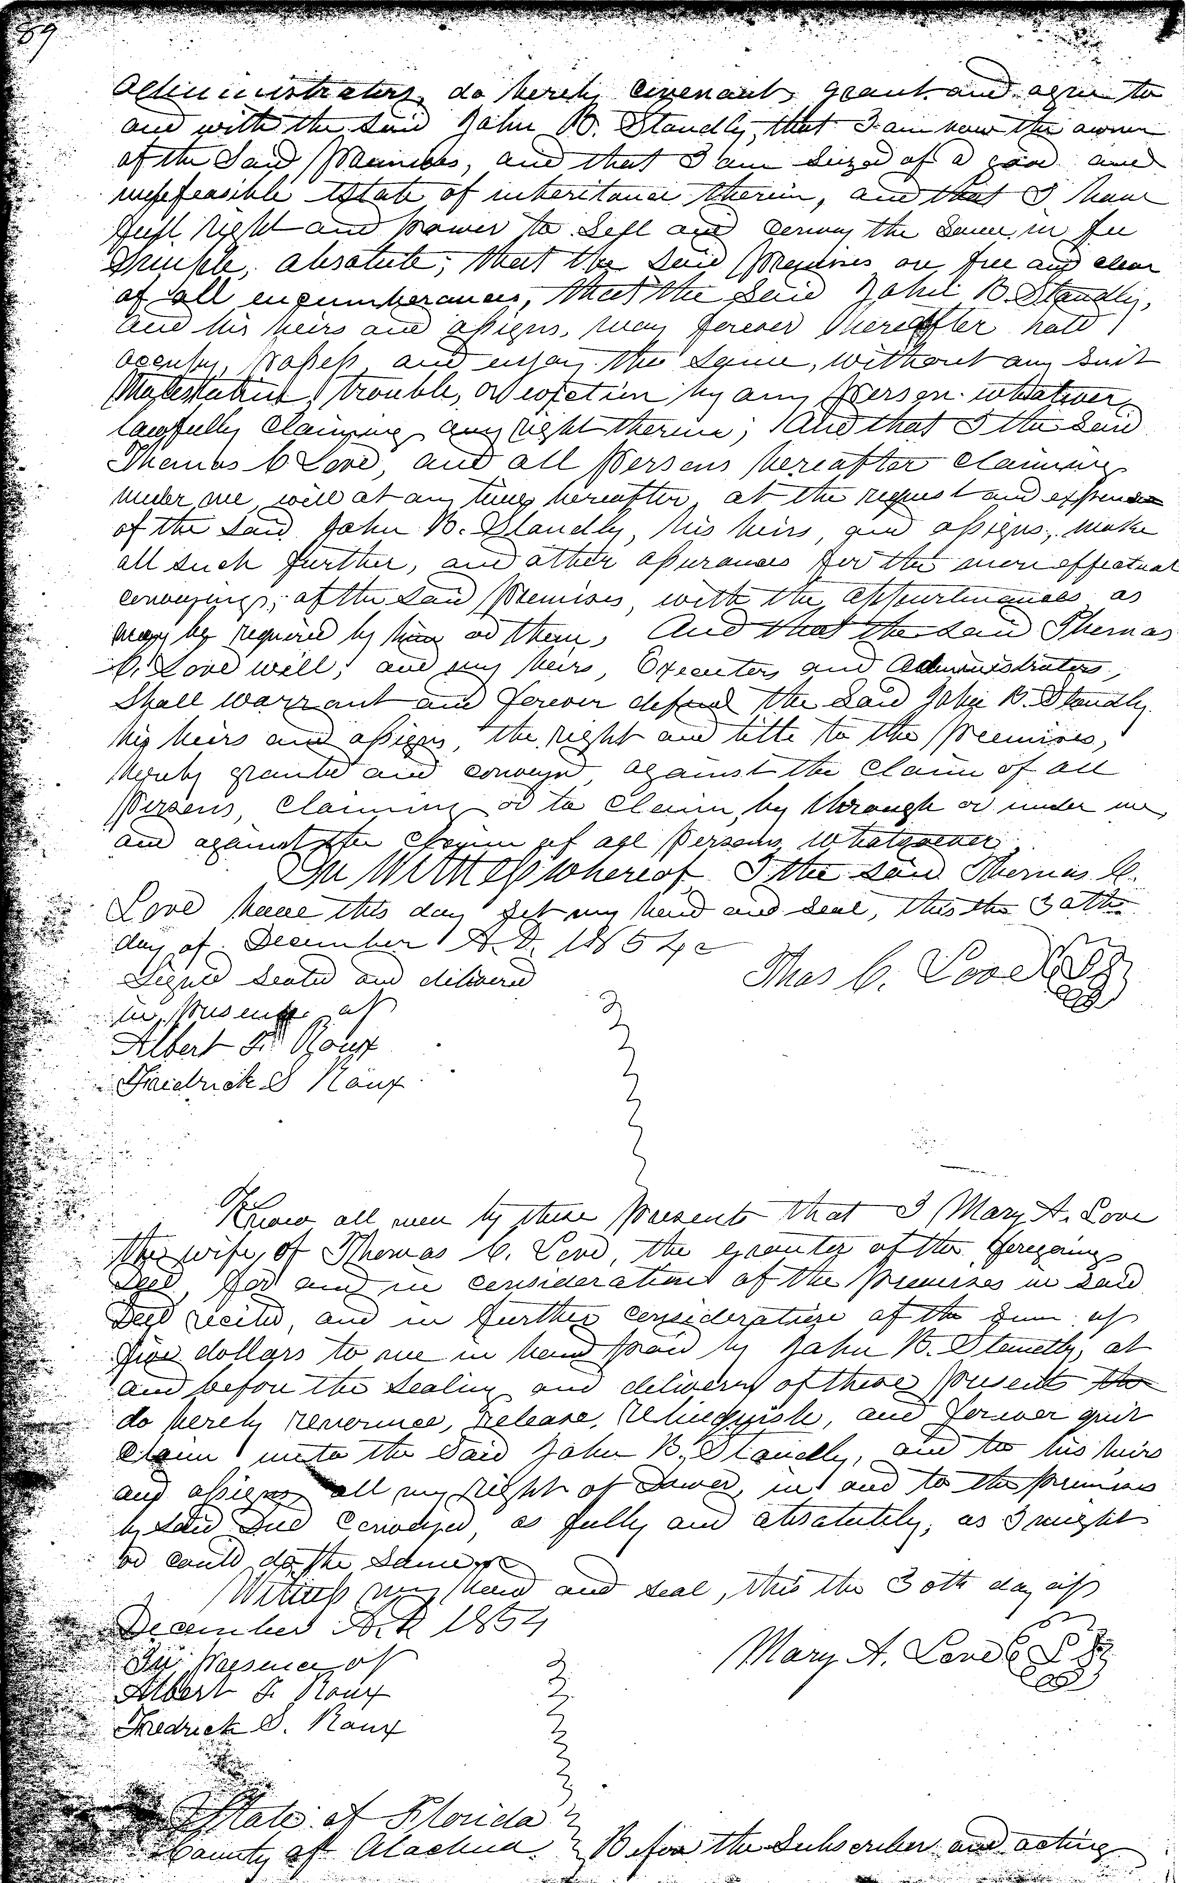 89
administrators, do hereby covenant, grant and agree to
and with the said John B. Standly, that I am now the owner
of the said premises, and that I am seized of a good and
indefeasible estate of inheritance therein, and that I have
full right and power to sell and convey the same in fee
simple, absolute; that the said premises are free and clear
of all encumberances, that the said John B. Standly,
and his heirs and assigns, may forever hereafter hold
occupy, possess, and enjoy the same, without any suit
Molestation, trouble, or eviction by any person whatever
lawfully claiming any right therein; And that I the said
Thomas C Love, and all persons hereafter claiming
under me, will at any time hereafter, at the request and expense
of the said John B. Standly, his heirs, and assigns, make
all such further, and other assurances for the more effectual
conveying, of the said premises, with the appurtinances as
may be required by him or them, And that the said Thomas
C. Love will, and my heirs, Executors and Administrators,
Shall warrant and forever defend the said John B. Standly
his heirs and assigns, the right and title to the premises,
hereby granted and conveyed, against the claim of all
persons, claiming or to claim, by through or under me,
and against the claim of all persons whatsoever.
In Witness whereof I the said Thomas C.
Love have this day set my hand and seal, this the 30th
day of December A.D. 1854
Signed sealed and delivered
Thos C. Love LS
in presence of
Albert F. Roux
Fredrick S Roux
Know all men by these presents that I Mary A. Love
the wife, of Thomas C. Love, the grantor of the foregoing
Deed, for and in consideration of the premises in said
Deed recited, and in further consideration of the sum of
five dollars to me in hand paid by John B. Standly, at
and before the sealing and delivery of these presents the
do hereby renounce, release, relinquish, and forever quit
claim unto the said John B. Standly, and to his heirs
and assigns all my right of Dower, in and to the premises
by said Deed conveyed, as fully and absolutely, as I might
or could do the same
Witness my hand and seal, this the 30th day of
December A.D. 1854
Mary A. Love LS
In presence of
Albert F. Roux
Fredrick S. Roux
State of Florida
County of Alachua. Before the Subscriber and acting